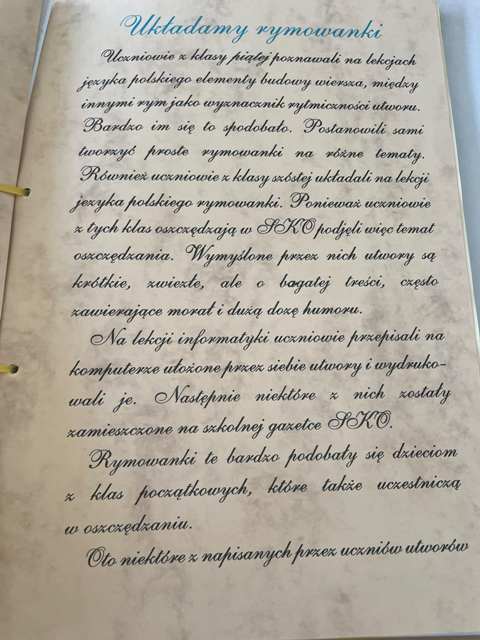 Układamy rymowanki
Uczniowie z klasy piątej poznawali na lekcjach
języka polskiego elementy budowy wiersza, między
innymi rym jako wyznacznik rytmiczności utworu.
Bardzo im się to spodobało. Postanowili sami
tworzyć proste rymowanki na różne tematy.
Również uczniowie z klasy szóstej układali na lekcji
języka polskiego rymowanki. Ponieważ uczniowie
z tych klas oszczędzają w SKO podjęli więc temat
oszczędzania. Wymyślone przez nich utwory są
krótkie, zwięzłe, ale o bogatej treści, często
zawierające morał i dużą dozę humoru.
Na lekcji informatyki uczniowie przepisali na
komputerze ułożone przez siebie utwory i wydruko-
wali je. Następnie niektóre z nich zostały
zamieszczone na szkolnej gazetce SKO.
Rymowanki te bardzo podobały się dzieciom
z klas początkowych, które także uczestniczą
w oszczędzaniu.
Oto niektóre z napisanych przez uczniów utworów